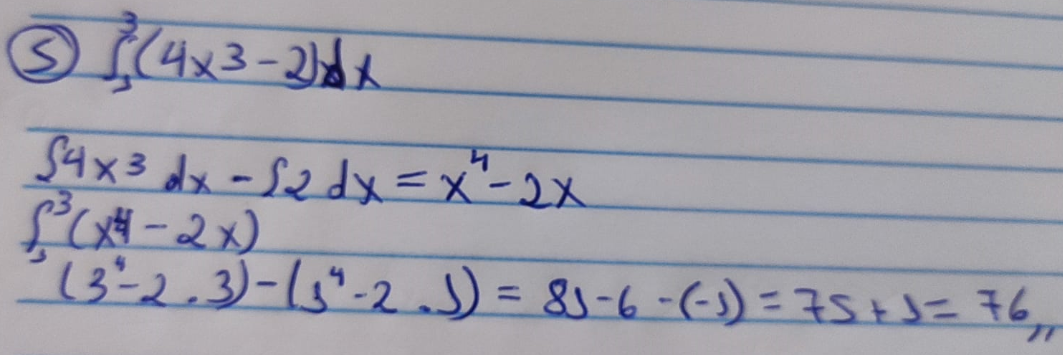 ⑤ ∫₁³(4x3-2)dx
∫4x³ dx - ∫2 dx = x⁴ - 2x
∫₁³(x⁴ - 2x)
(3⁴-2.3)-(1⁴-2.1) = 81-6-(-1) = 75+1 = 76,,